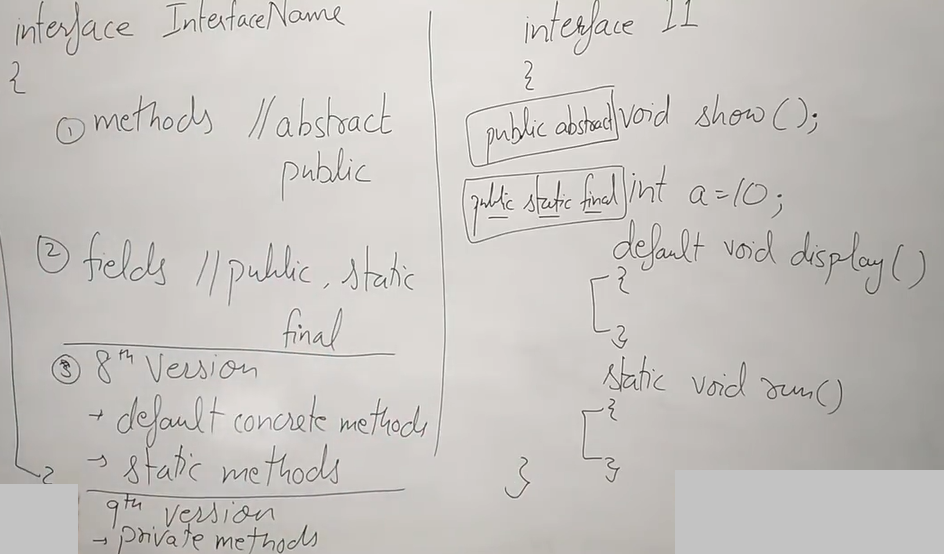 interface InterfaceName
{
① methods //abstract
public
② fields //public, static
final
③ 8th Version
→ default concrete methods
→ static methods
}
9th version
→ private methods
interface I1
{
public abstract void show();
public static final int a=10;
default void display()
{
}
static void run()
{
}
}